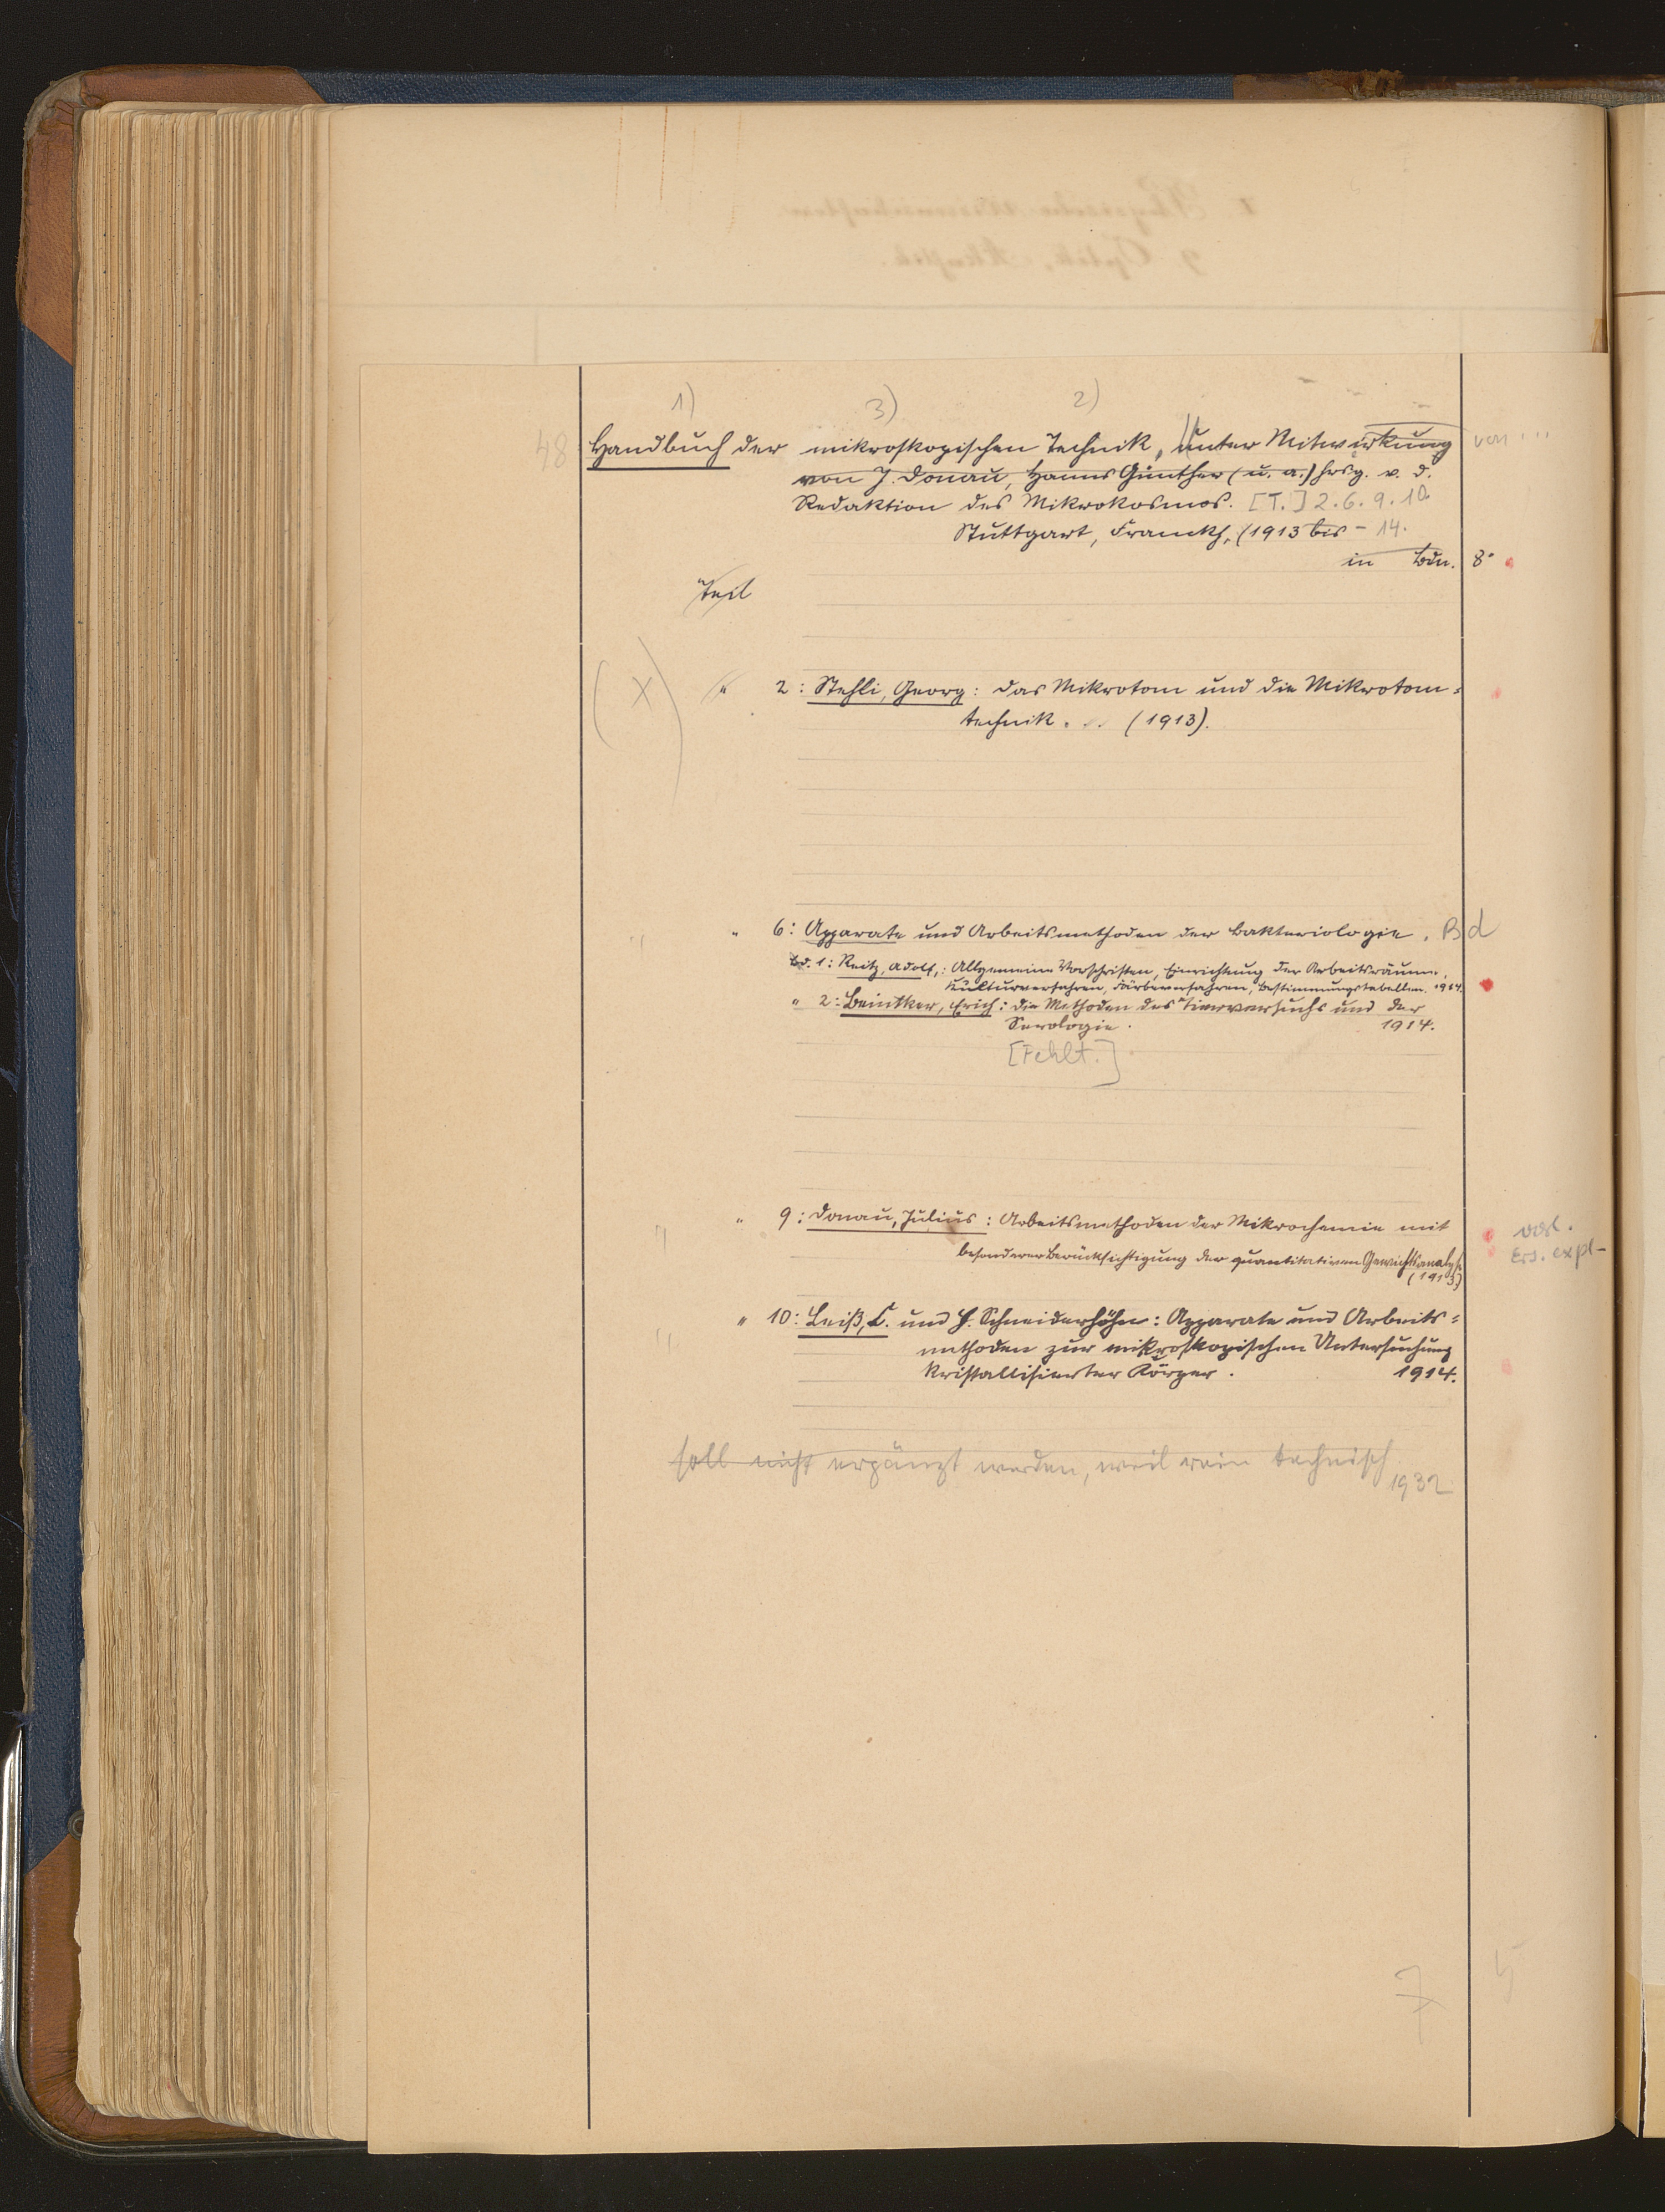 1) 3) 2)
48 Handbuch der mikroskopischen Technik, unter Mitwirkung von ...
von J. Donau, Hanns Günther (u. a.) hrsg. v. d.
Redaktion des Mikrokosmos. [T.] 2. 6. 9. 10
Stuttgart, Franckh, (1913 bis - 14.
in Bdn. 8°
Teil
(X) " 2: Stehli, Georg: Das Mikrotom und die Mikrotom=
technik. .. (1913).
" " 6: Apparate und Arbeitsmethoden der Bakteriologie. Bd
Bd. 1: Reitz, Adolf,: Allgemeine Vorschriften, Einrichtung der Arbeitsräume,
Kulturverfahren, Färbeverfahren, Bestimmungstabellen. 1914.
" 2: Beintker, Erich: Die Methoden des Tierversuchs und der
Serologie. 1914.
[Fehlt.]
" " 9: Donau, Julius: Arbeitsmethoden der Mikrochemie mit
besonderer Berücksichtigung der quantitativen Gewichtsanalyse
(1913)
Ers. expl-
" " 10: Leiß, C. und H. Schneiderhöhn: Apparate und Arbeits=
methoden zur mikroskopischen Untersuchung
kristallisierter Körper. 1914.
soll nicht ergänzt werden, weil rein technisch
1932
7 5